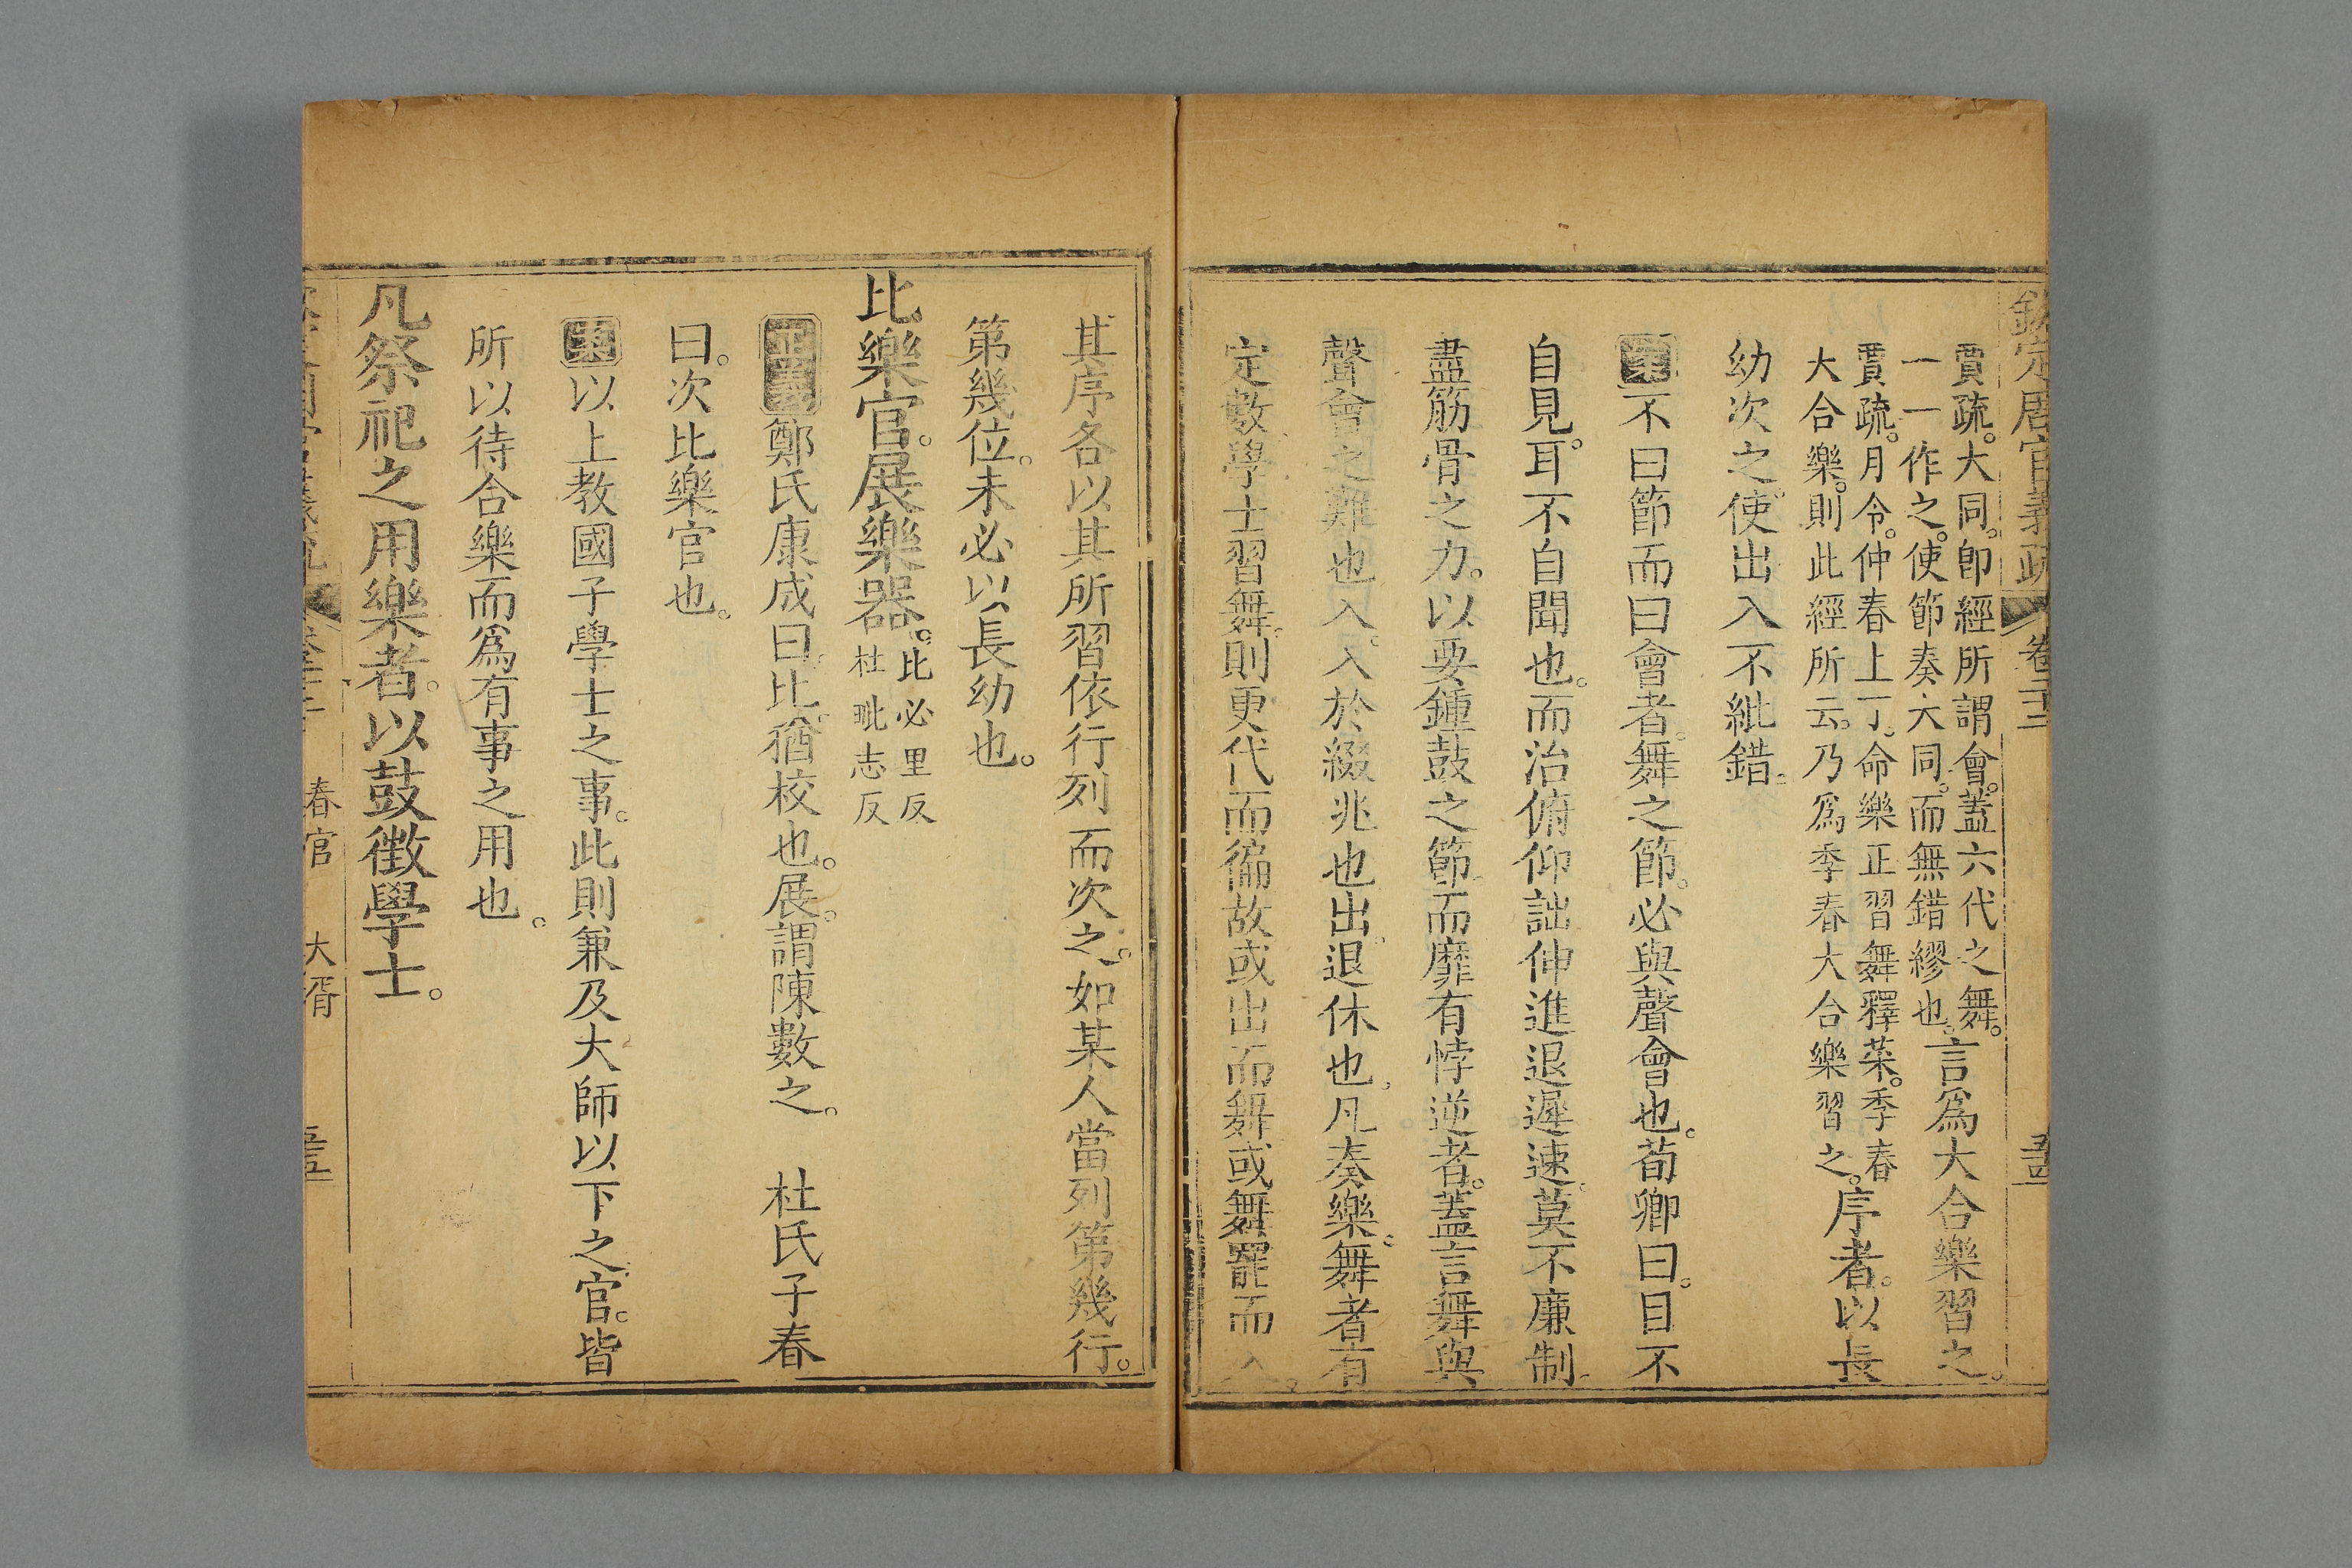 欽定周官義疏 卷二十三 五十四
賈疏。大同。卽經所謂會。蓋六代之舞。
一一作之。使節奏大同。而無錯繆也。言爲大合樂習之。
賈疏。月令。仲春上丁。命樂正習舞釋菜。季春
大合樂。則此經所云。乃爲季春大合樂習之。序者。以長
幼次之。使出入不紕錯。
案不曰節而曰會者。舞之節。必與聲會也。荀卿曰。目不
自見。耳不自聞也。而治俯仰詘伸進退遲速。莫不廉制
盡筋骨之力。以要鍾鼓之節。而靡有悖逆者。蓋言舞與
聲會之難也。入。入於綴兆也。出。退休也。凡奏樂。舞者有
定數。學士習舞。則更代而徧。故或出而舞。或舞罷而入。
其序各以其所習依行列而次之。如某人當列第幾行。
第幾位。未必以長幼也。
比樂官。展樂器。比必里反
杜毗志反
正義鄭氏康成曰。比。猶校也。展。謂陳數之。 杜氏子春
曰。次比樂官也。
案以上教國子學士之事。此則兼及大師以下之官。皆
所以待合樂而爲有事之用也。
凡祭祀之用樂者。以鼓徵學士。
春官 大胥 五十五